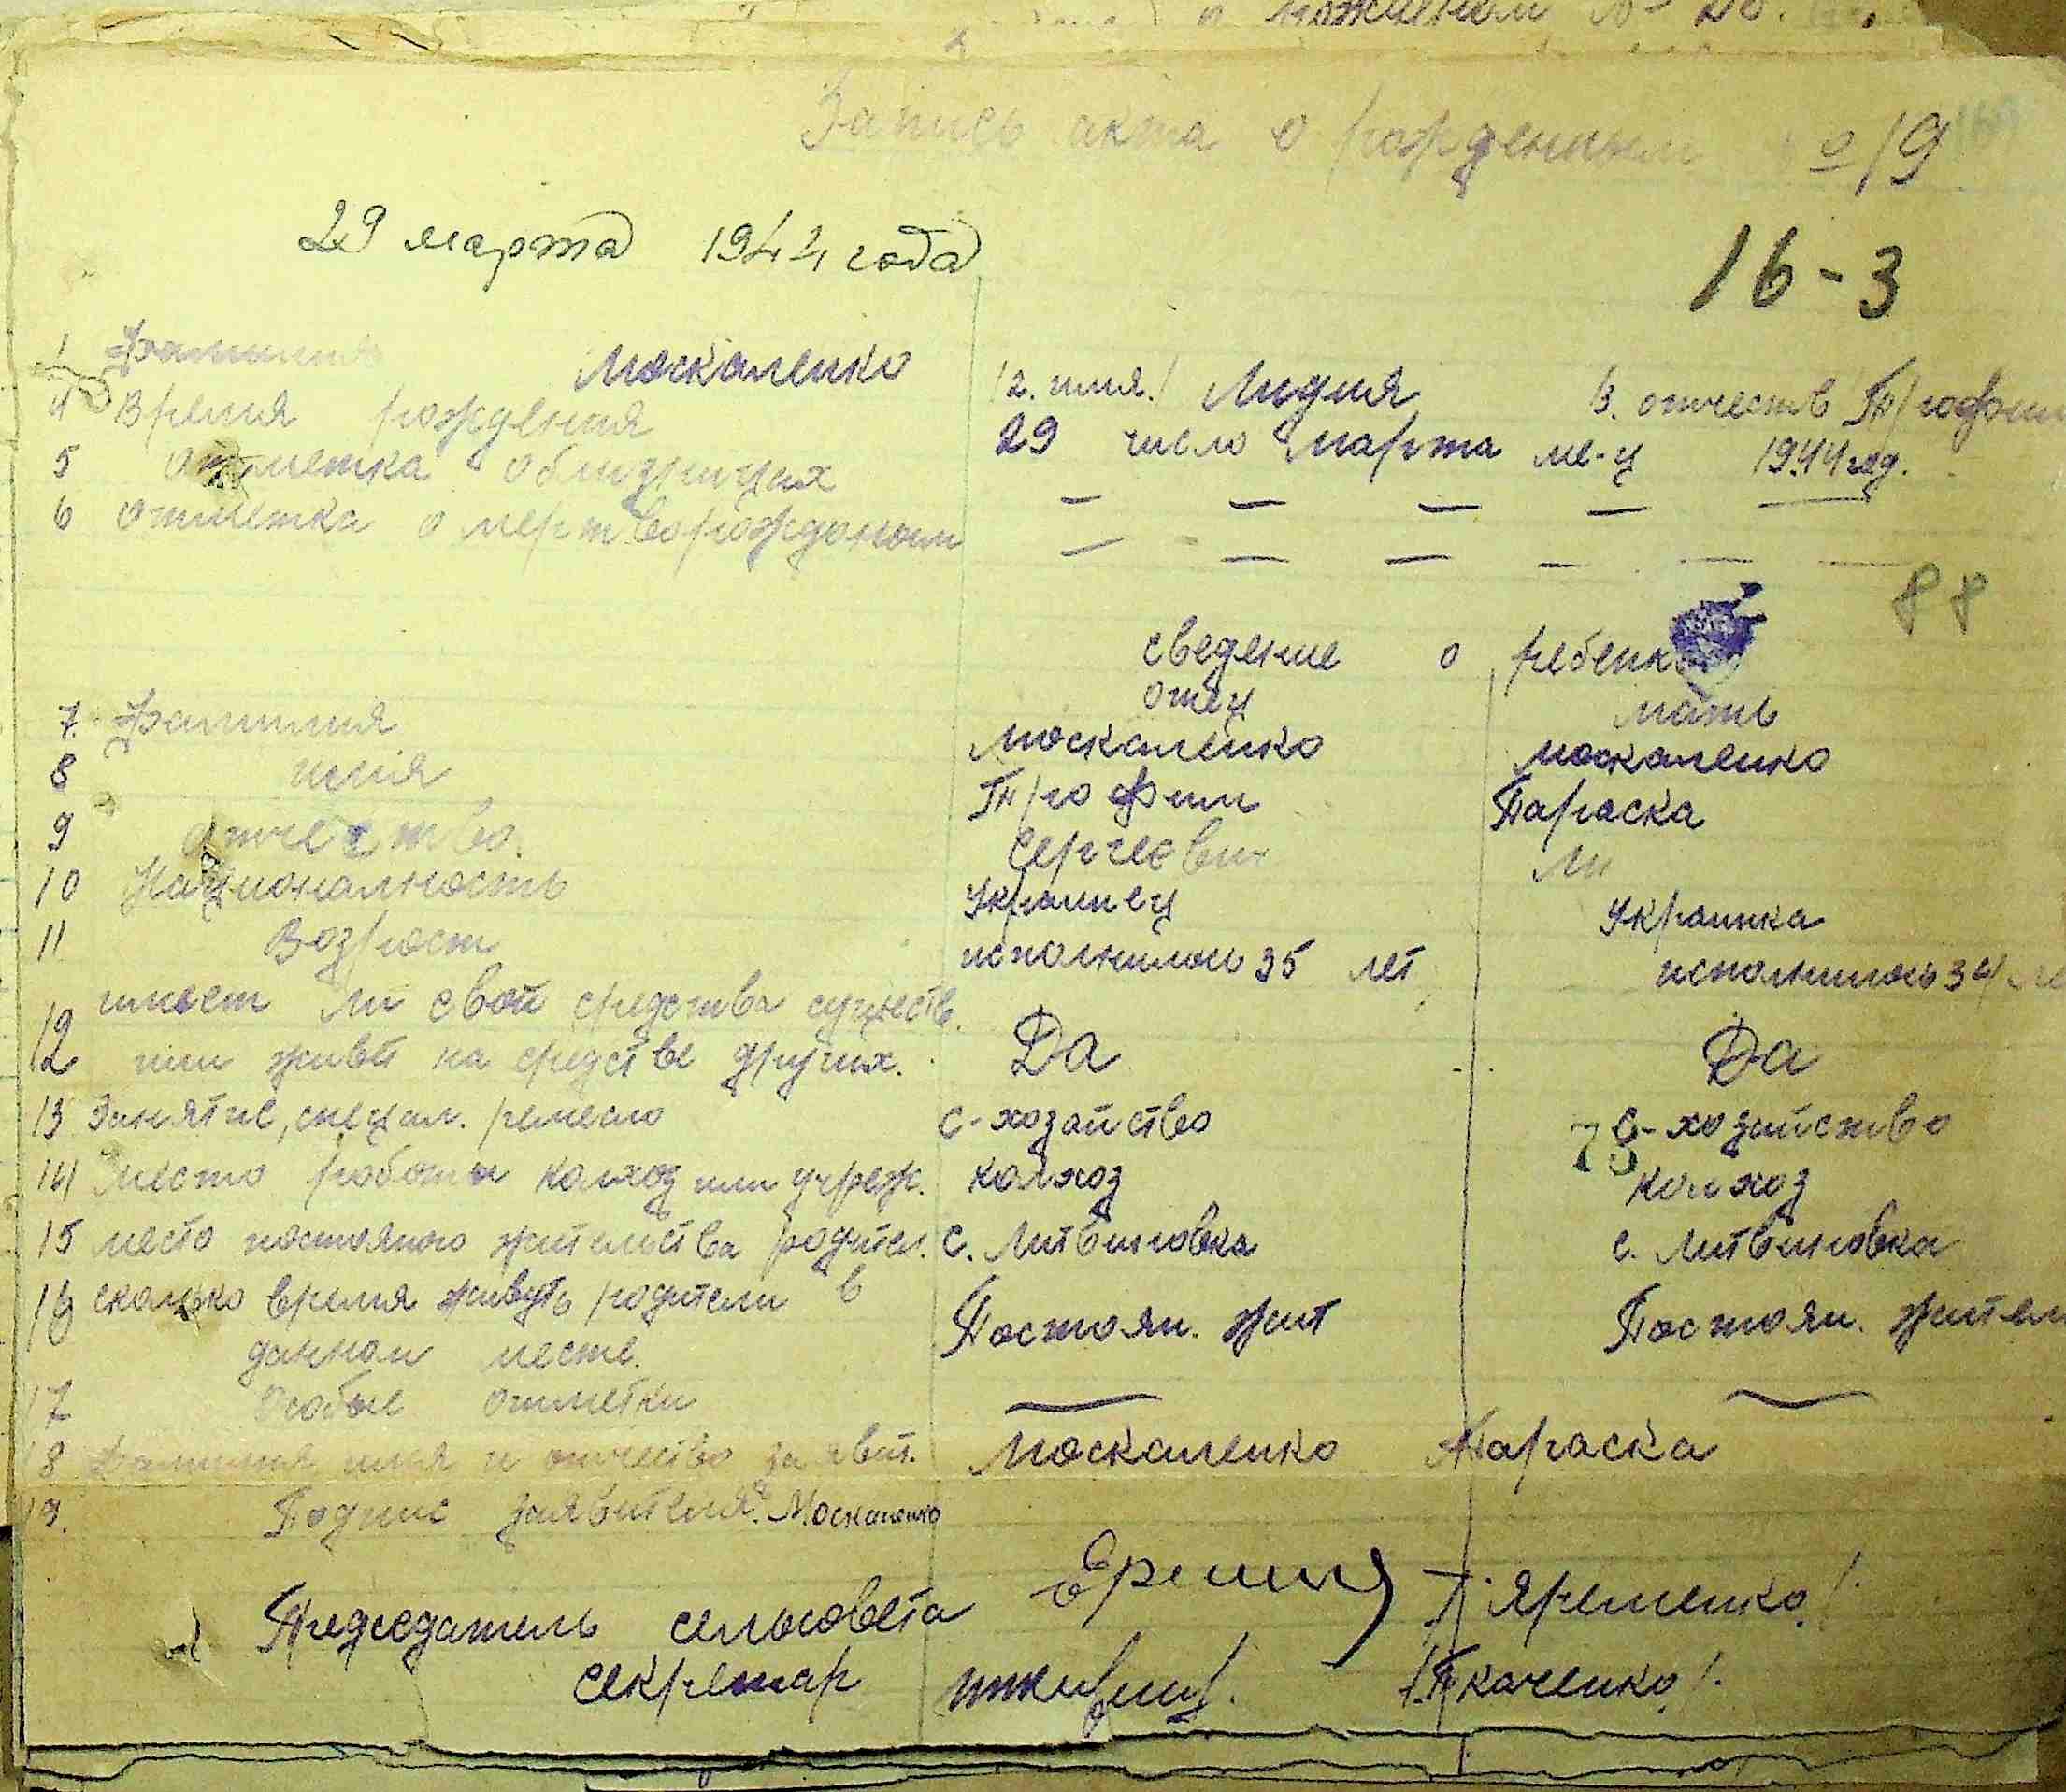 Запись акта о рожденным № 19
29 марта 1944 года
16-3
1 Фамилия Москаленко /2. имя./ Лидия /3. отчеств Трофом
4 Время рождения 29 число марта ме-ц 1944 год.
5 Отметка облизницах — — — — —
6 Отметка о мертворождоном — — — — — —
88
сведение о ребенк
отец мать
7. Фамилия Москаленко Москаленко
8 имія Трофим Параска
9 отчество. Сергеевич
10 Национальность Украинец Украинка
11 Возраст исполнилось 35 лет исполнилось 34 ле
имеет ли свой средства существ.
12 или живет на средстве других. Да Да
13 Занятие, специал. ремесло с-хозайство с-хозайство
75
14 Место работы колхоз или учреж. колхоз колхоз
15 место постояного жительства родител. с. Литвиновка с. Литвиновка
16 сколько время живуть родители в
данном месте. Постоян. жит Постоян. жител
17 Особые отметки — —
18 Фамилия имя и отчество заявит. Москаленко Параска
19. Подпис заявителя. Москаленко
Председатель сельсовета Яременко/.
секретар /Ткаченко/.